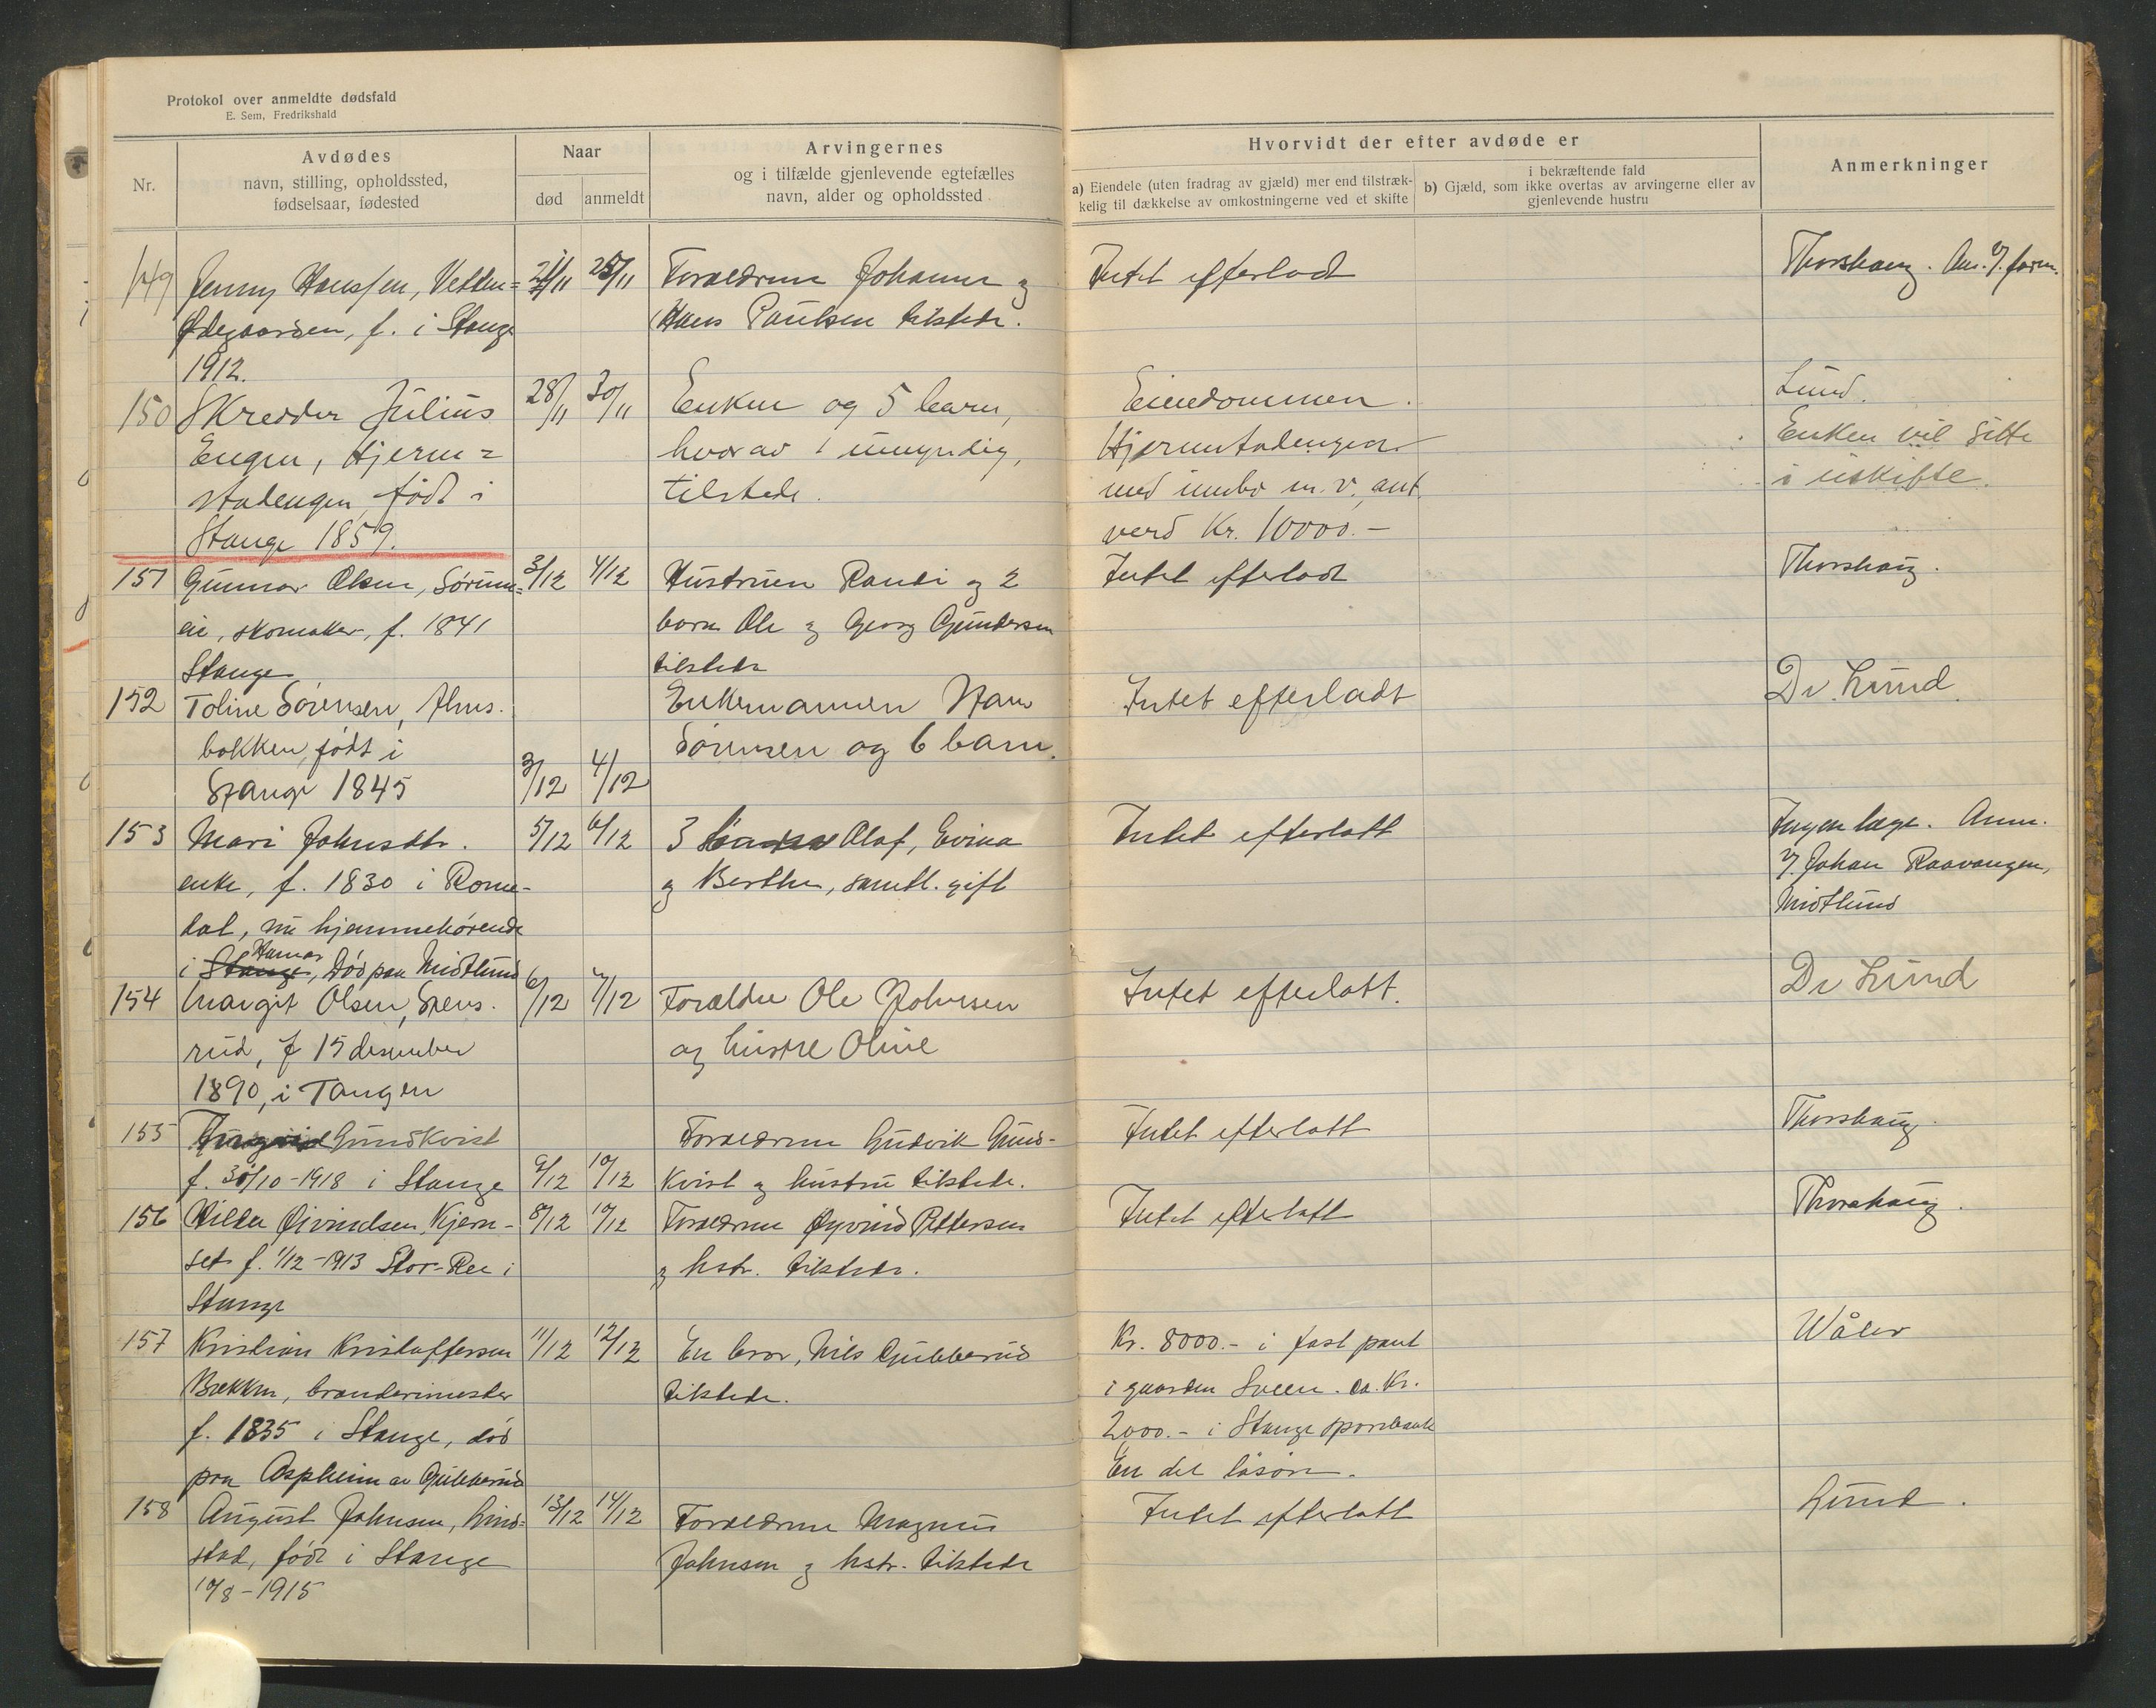 Protokol over anmeldte dødsfald
E. Sem, Fredrikshald
Nr.
Avdødes
navn, stilling, opholdssted,
fødselsaar, fødested
Naar
død
anmeldt
Arvingernes
og i tilfælde gjenlevende egtefælles
navn, alder og opholdssted
Hvorvidt der efter avdøde er
a) Eiendele (uten fradrag av gjæld) mer end tilstræk-
kelig til dækkelse av omkostningerne ved et skifte
i bekræftende fald
b) Gjæld, som ikke overtas av arvingerne eller av
gjenlevende hustru
Anmerkninger
149
Jenny Hanssen,
Ødegaarden, f. i Stange
1912.
25/11
Forældrene Johanne og
Hans Paulsen tilstede.
Intet efterladt
Thorshaug.
150
Skredder Julius
Engen, Hjerm=
stadengen, født i
Stange 1859.
28/11
30/11
Enken og 5 barn,
hvorav 1 umyndig,
tilstede.
Eiendommen
Hjermstadengen
med innbo m. v. ant.
verd Kr. 10000.-
Lund.
Enken vil sitte
i uskifte.
151
Gunnar Olsen, Sørum=
eie, skomaker, f. 1841
Stange
3/12
4/12
Hustruen Randi og 2
barn Ole og Georg Gundersen
tilstede
Intet efterladt
Thorshaug.
152
Toline Sørensen, Alms.
bakken, født i
Stange 1845
3/12
4/12
Enkemannen Hans
Sørensen og 6 barn.
Intet efterladt
Dr. Lund
153
Mari Johnsdtr.
enke, f. 1830 i Rome-
dal, nu hjemmehørende
i Stange Hamar, død paa Midtlund
5/12
6/12
3 Olaf, Evina
og Berthe, samtl. gift
Intet efterlatt
Ingen læge. Anm.
v/ Johan Raavangen,
Midtlund
154
Margit Olsen, Stens.
rud, f 15 desember
1890, i Tangen
6/12
7/12
Forældre Ole Johnsen
og hustre Oline
Intet efterlatt.
Dr Lund
155
f. 30/10-1918 i Stange
9/12
10/12
Forældrene
kvist og hustru tilstede.
Intet efterlatt
Thorshaug.
156
Hilda Øivindsen, Kjern-
set f. 1/12-1913 Stor-Ree i
Stange
8/12
10/12
Forældrene Øyvind Pettersen
og hstr. tilstede.
Intet efterlatt
Thorshaug.
157
Kristian Kristoffersen
Bækken, brænderimester
f. 1835 i Stange, død
paa Aspheim av Gubberud
11/12
12/12
En bror, Nils Gubberud
tilstede.
Kr. 8000.- i fast pant
i gaarden Sveen. ca. Kr.
2000.- i Stange sparebank
En del løsøre.
Wåler
158
August Johnsen, Lind=
stad, født i Stange
10/8-1915
13/12
14/12
Forældrene Magnus
Johnsen og hstr. tilstede
Intet efterlatt
Lund.